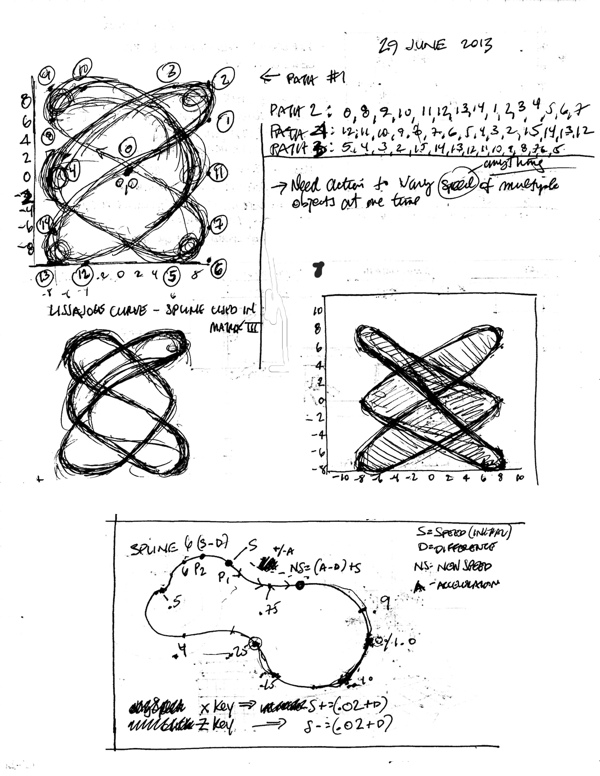 29 JUNE 2013
← PATH #1
PATH 2: 0, 8, 9, 10, 11, 12, 13, 14, 1, 2, 3, 4, 5, 6, 7
PATH 4: 12, 11, 10, 9, 8, 7, 6, 5, 4, 3, 2, 15, 14, 13, 12
PATH 3: 5, 4, 3, 2, 15, 14, 13, 12, 11, 10, 9, 8, 7, 6, 5
anything
→ Need action to vary speed of multiple
objects at one time
9 10 3 2
8
6
1
4
8
2
0
0
4
0,0
11
-2
-4
14
-6
7
-8
13 12 -2 0 2 4 5 6
LISSAJOUS CURVE - SPLINE USED IN
MATRIX III
10
8
6
4
2
0
-2
-4
-6
-8
-10 -8 -6 -4 -2 0 2 4 6 8 10
SPLINE 6 (S-D)
S
+/-A
P2
P1
NS=(A-D)+S
.75
.5
.9
.4
.25
0/1.0
.15
.10
S=SPEED (INITIAL)
D=DIFFERENCE
NS-NEW SPEED
A-ACCELERATION
X KEY ⇒ S+=(.02+D)
Z KEY ⇒ S-=(.02+D)